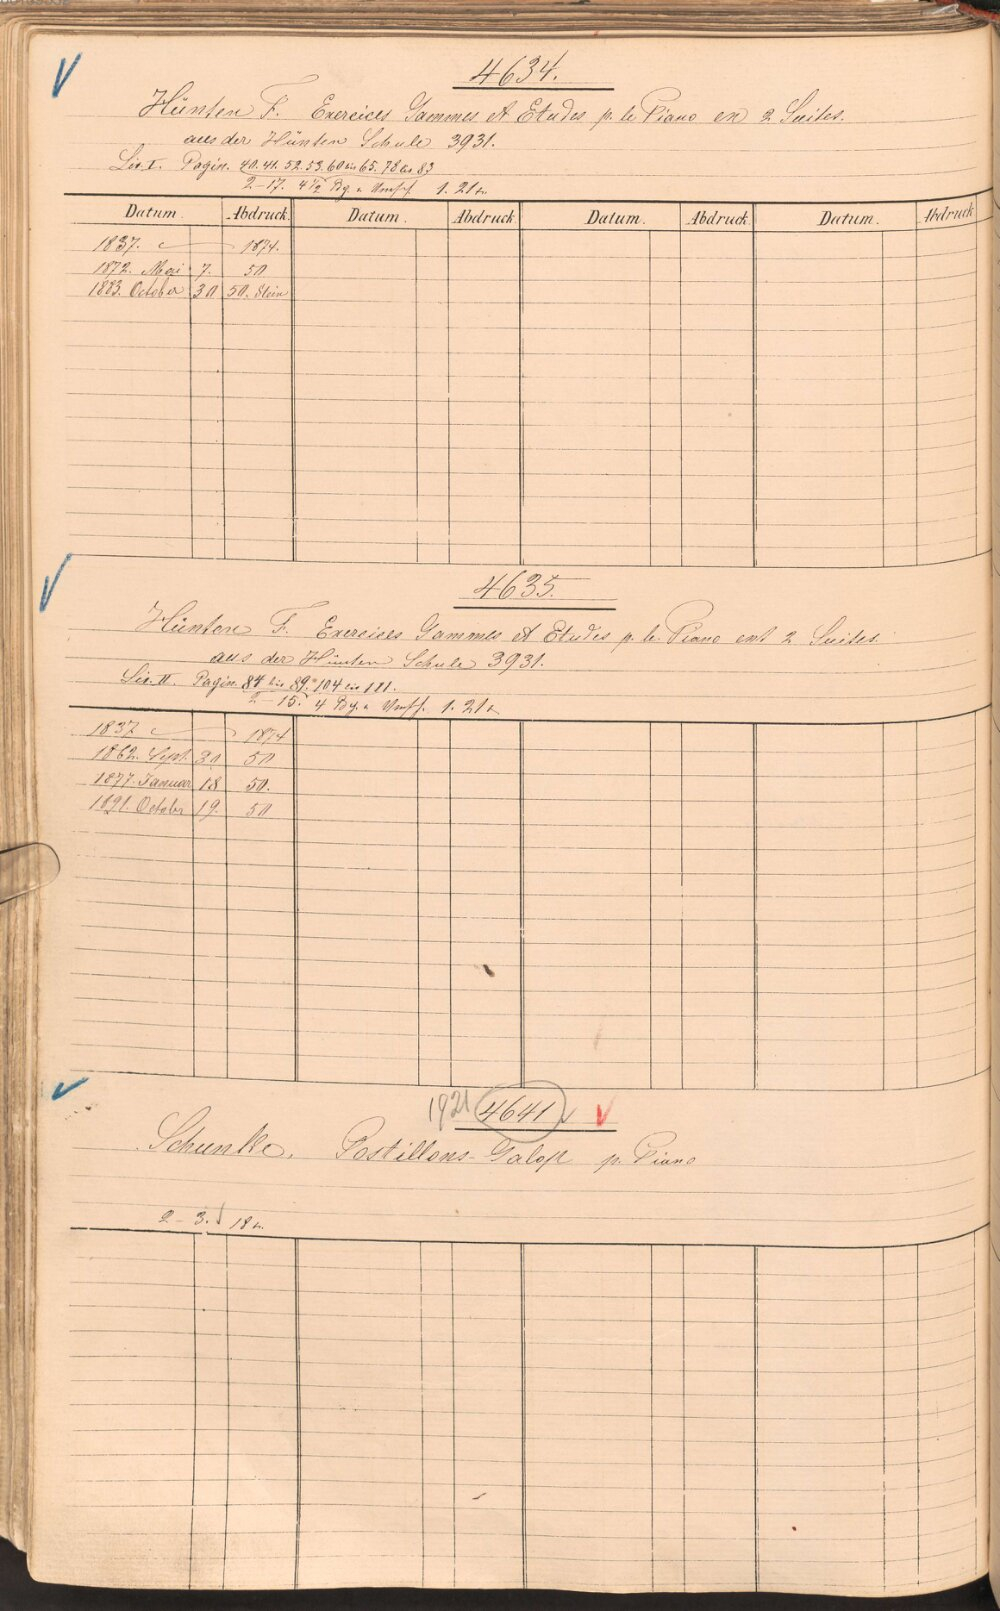 4634.
Hünten F. Exercices Gammes et Etudes p. le Piano en 2 Suites.
aus der Hünten Schule 3931.
Liv. I. Pagin. 40. 41. 52. 53. 60 bis 65. 78 bis 83
2-17. 4 1/2 Bg. u Umschl. 1. 21
Datum. Abdruck. Datum. Abdruck Datum. Abdruck Datum. Abdruck
1837. 1874.
1872. Mai 7. 50
1883. October 30 50. Stein
4635.
Hünten F. Exercises Gammes et Etudes p. le Piano ent 2 Suites.
aus der Hünten Schule 3931.
Liv. II. Pagin. 84 bis 89. 104 bis 111.
2-15. 4 Bg. u Umschl. 1. 21
1837 1874
1862. Sept. 30. 50
1877. Januar 18 50.
1891. October 19. 50
1921 4641
Schunke. Postillons-Galop p. Piano
2-3. 18